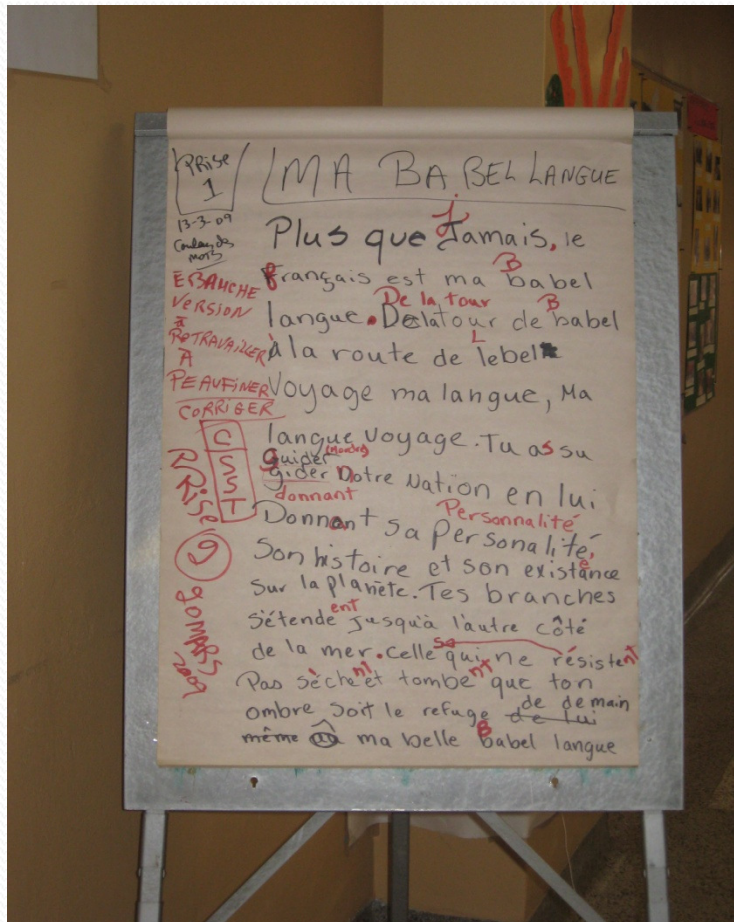 PRise
1
13-3-09
Couleur des
mots
EBAUCHE
VERSION
à
RETRAVAILLER
À
PEAUFINER
CORRIGER
C
S
S
T
PRise
9
30 MARS
2009
MA BABEL LANGUE
j
Plus que Jamais, le
B
français est ma babel
De la tour B
langue. Delatour de babel
L
à la route de lebel
Voyage ma langue, Ma
langue voyage. Tu as su
Guider (Montre)
gider Notre Nation en lui
donnant Personnalité
Donnant sa personalité,
Son histoire et son existance
e
sur la planète. Tes branches
ent
s'étende jusqu'à l'autre côté
se
de la mer. Celle qui ne résistent
Pas sèchent et tombent que ton
ombre soit le refuge de lui de demain
même ma belle babel langue
B